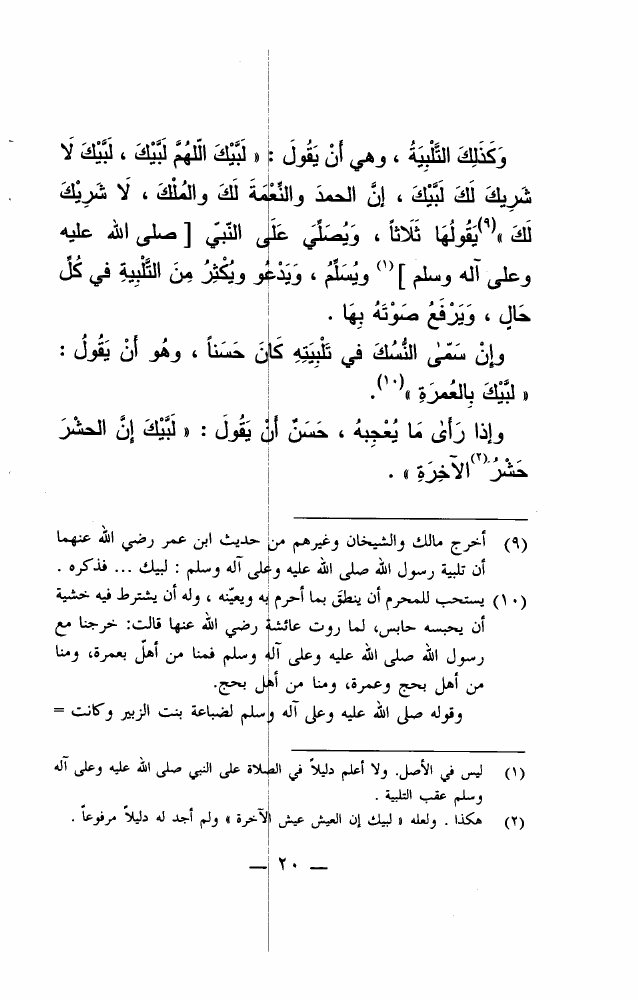 وَكَذَلِكَ التَّلْبِيَةُ ، وهي أَنْ يَقُولَ : « لَبَّيْكَ اللّهُمَّ لَبَّيْكَ ، لَبَّيْكَ لَا
شَرِيكَ لَكَ لَبَّيْكَ ، إِنَّ الحمدَ والنِّعْمَةَ لَكَ والمُلْكَ ، لَا شَرِيْكَ
لَكَ »(٩) يَقُولُهَا ثَلَاثاً ، وَيُصَلِّيَ عَلَى النّبيّ [ صلى الله عليه
وعلى آله وسلم ](١) ويُسَلِّمُ ، وَيَدْعُو ويُكْثِرُ مِنَ التَّلْبِيةِ في كُلِّ
حَالٍ ، وَيَرْفَعُ صَوْتَهُ بِهَا .
وإِنْ سَمّى النُّسُكَ في تَلْبِيَتِهِ كَانَ حَسَناً ، وهُو أَنْ يَقُولُ :
« لَبَّيْكَ بِالعُمرَةِ »(١٠).
وإذا رَأَى مَا يُعْجِبهُ ، حَسَنٌ أَنْ يَقُولَ : « لَبَّيْكَ إِنَّ الحشْرَ
حَشْرُ(٢) الآخِرَةِ » .
(٩) أخرج مالك والشيخان وغيرهم من حديث ابن عمر رضي الله عنهما
أن تلبية رسول الله صلى الله عليه وعلى آله وسلم : لبيك ... فذكره .
(١٠) يستحب للمحرم أن ينطق بما أحرم به ويعيّنه ، وله أن يشترط فيه خشية
أن يحبسه حابس، لما روت عائشة رضي الله عنها قالت: خرجنا مع
رسول الله صلى الله عليه وعلى آله وسلم فمنا من أهلّ بعمرة، ومنا
من أهل بحج وعمرة، ومنا من أهل بحج.
وقوله صلى الله عليه وعلى آله وسلم لضباعة بنت الزبير وكانت =
(١) ليس في الأصل. ولا أعلم دليلاً في الصلاة على النبي صلى الله عليه وعلى آله
وسلم عقب التلبية .
(٢) هكذا . ولعله « لبيك إن العيش عيش الآخرة » ولم أجد له دليلاً مرفوعاً .
— ٢٠ —